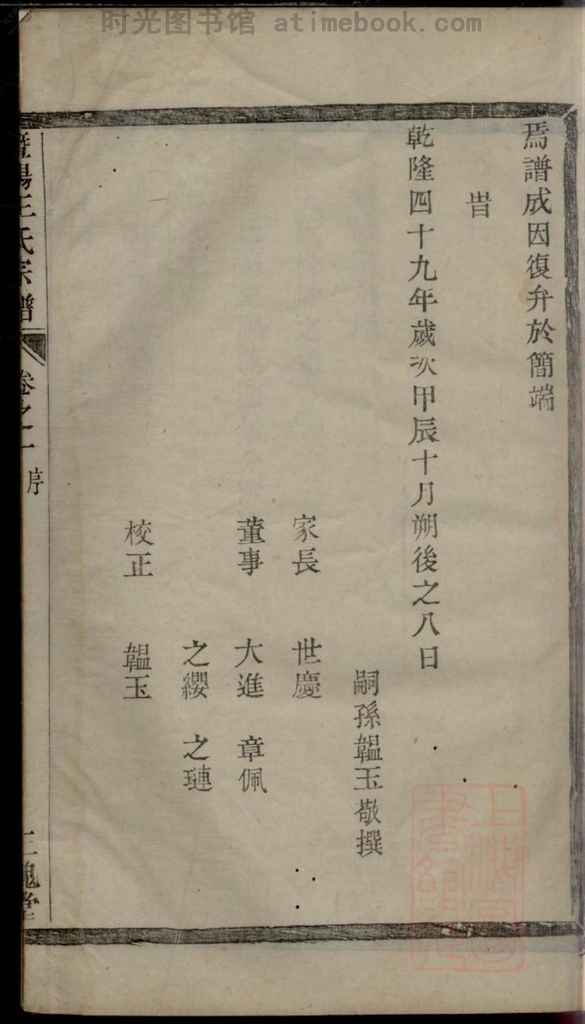 时光图书馆 atimebook.com
焉譜成因復弁於簡端
旹
乾隆四十九年歲次甲辰十月朔後之八日
嗣孫韞玉敬撰
家長 世慶
董事 大進 章佩
之纓 之璉
校正 韞玉
暨陽王氏宗譜 卷之一 序 三槐堂